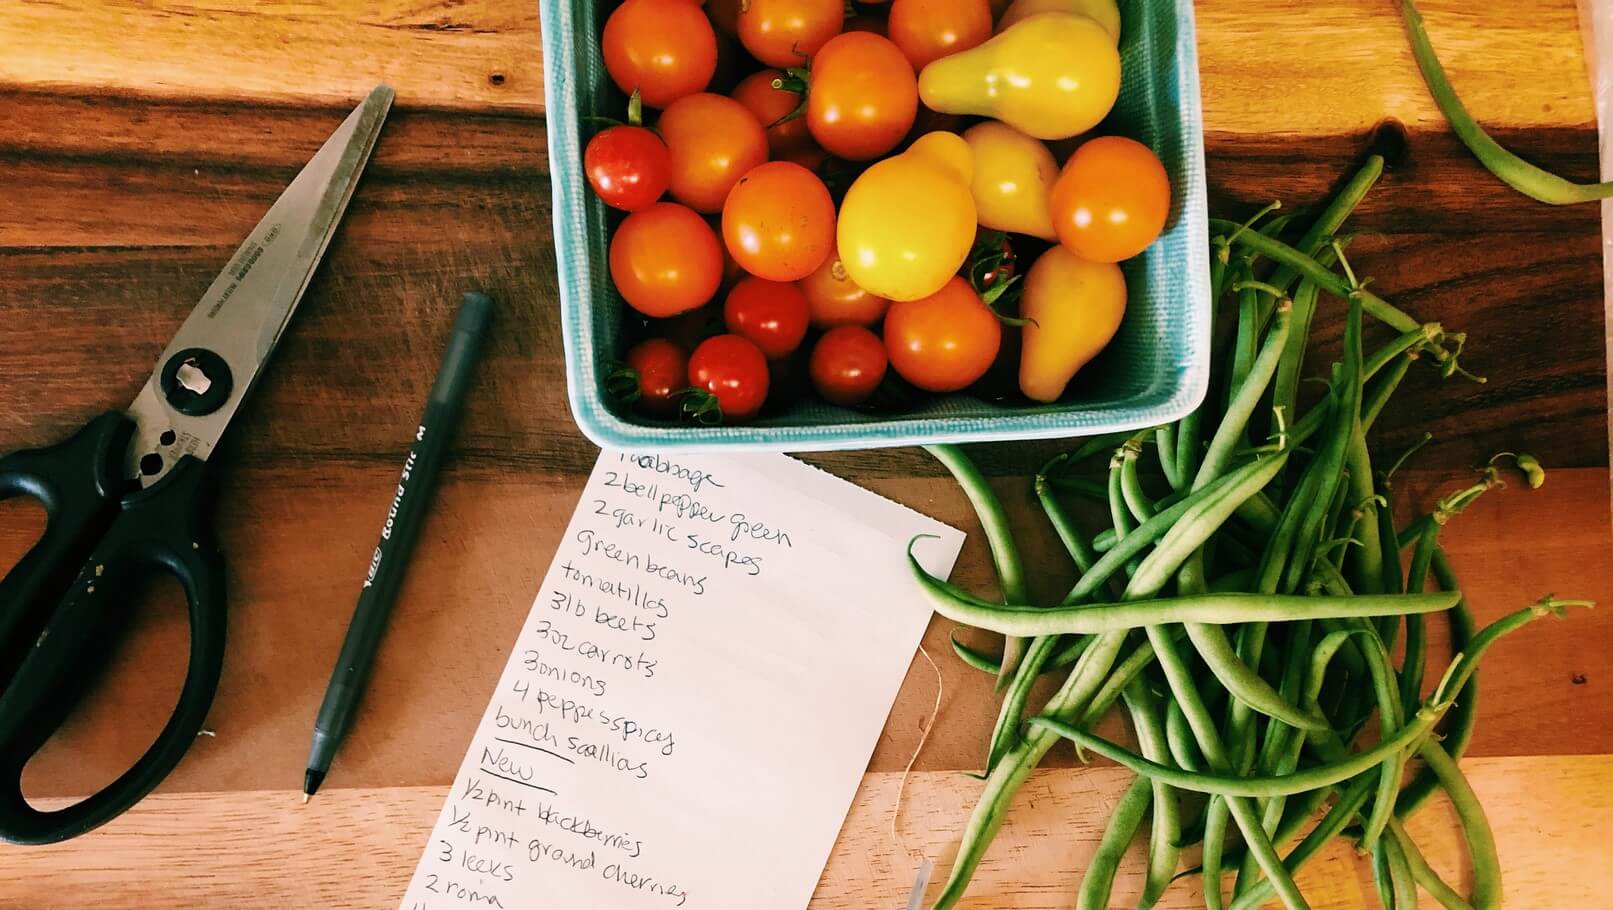 1 cabbage
2 bell pepper green
2 garlic scapes
green beans
tomatillos
3lb beets
3oz carrots
3 onions
4 peppes spicy
bunch scallias
New
1/2 pint blackberries
1/2 pint ground cherries
3 leeks
2 roma
BIC Round Stic M